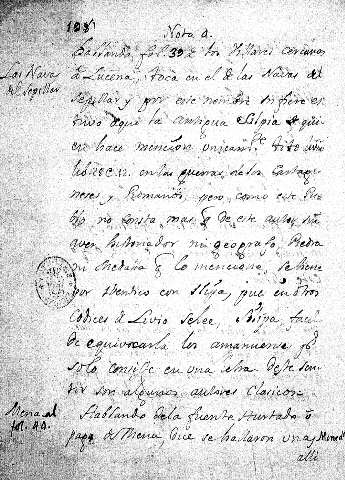 Nota 4.
Hablando fol. 39 de los Villares cercanos
Las Navas
del Sepillar
á Lucena, toca en el de las Navas del
Sepillar y por este nombre infiere es-
tuvo aqui la antigua Silpia de quien
hace mencion unicamte. Tito Livio
libro en las guerras de los Cartagi-
neses y Romanos, pero como este Pue-
blo no consta mas q de este autor sin
que haya historiador ni geografo, Piedra
ni Medalla q lo mencione, se tiene
por identico con Ilipa, que en otros
Codices de Livio se lee, Silpia facil
de equivocarla los amanuenses ps.
solo consiste en una letra de este sen-
tir son algunos autores Clasicos.
Mena al
fol. 40.
Hablando de la fuente Hurtada ó
pago de Mena, dice se hallaron unas
alli